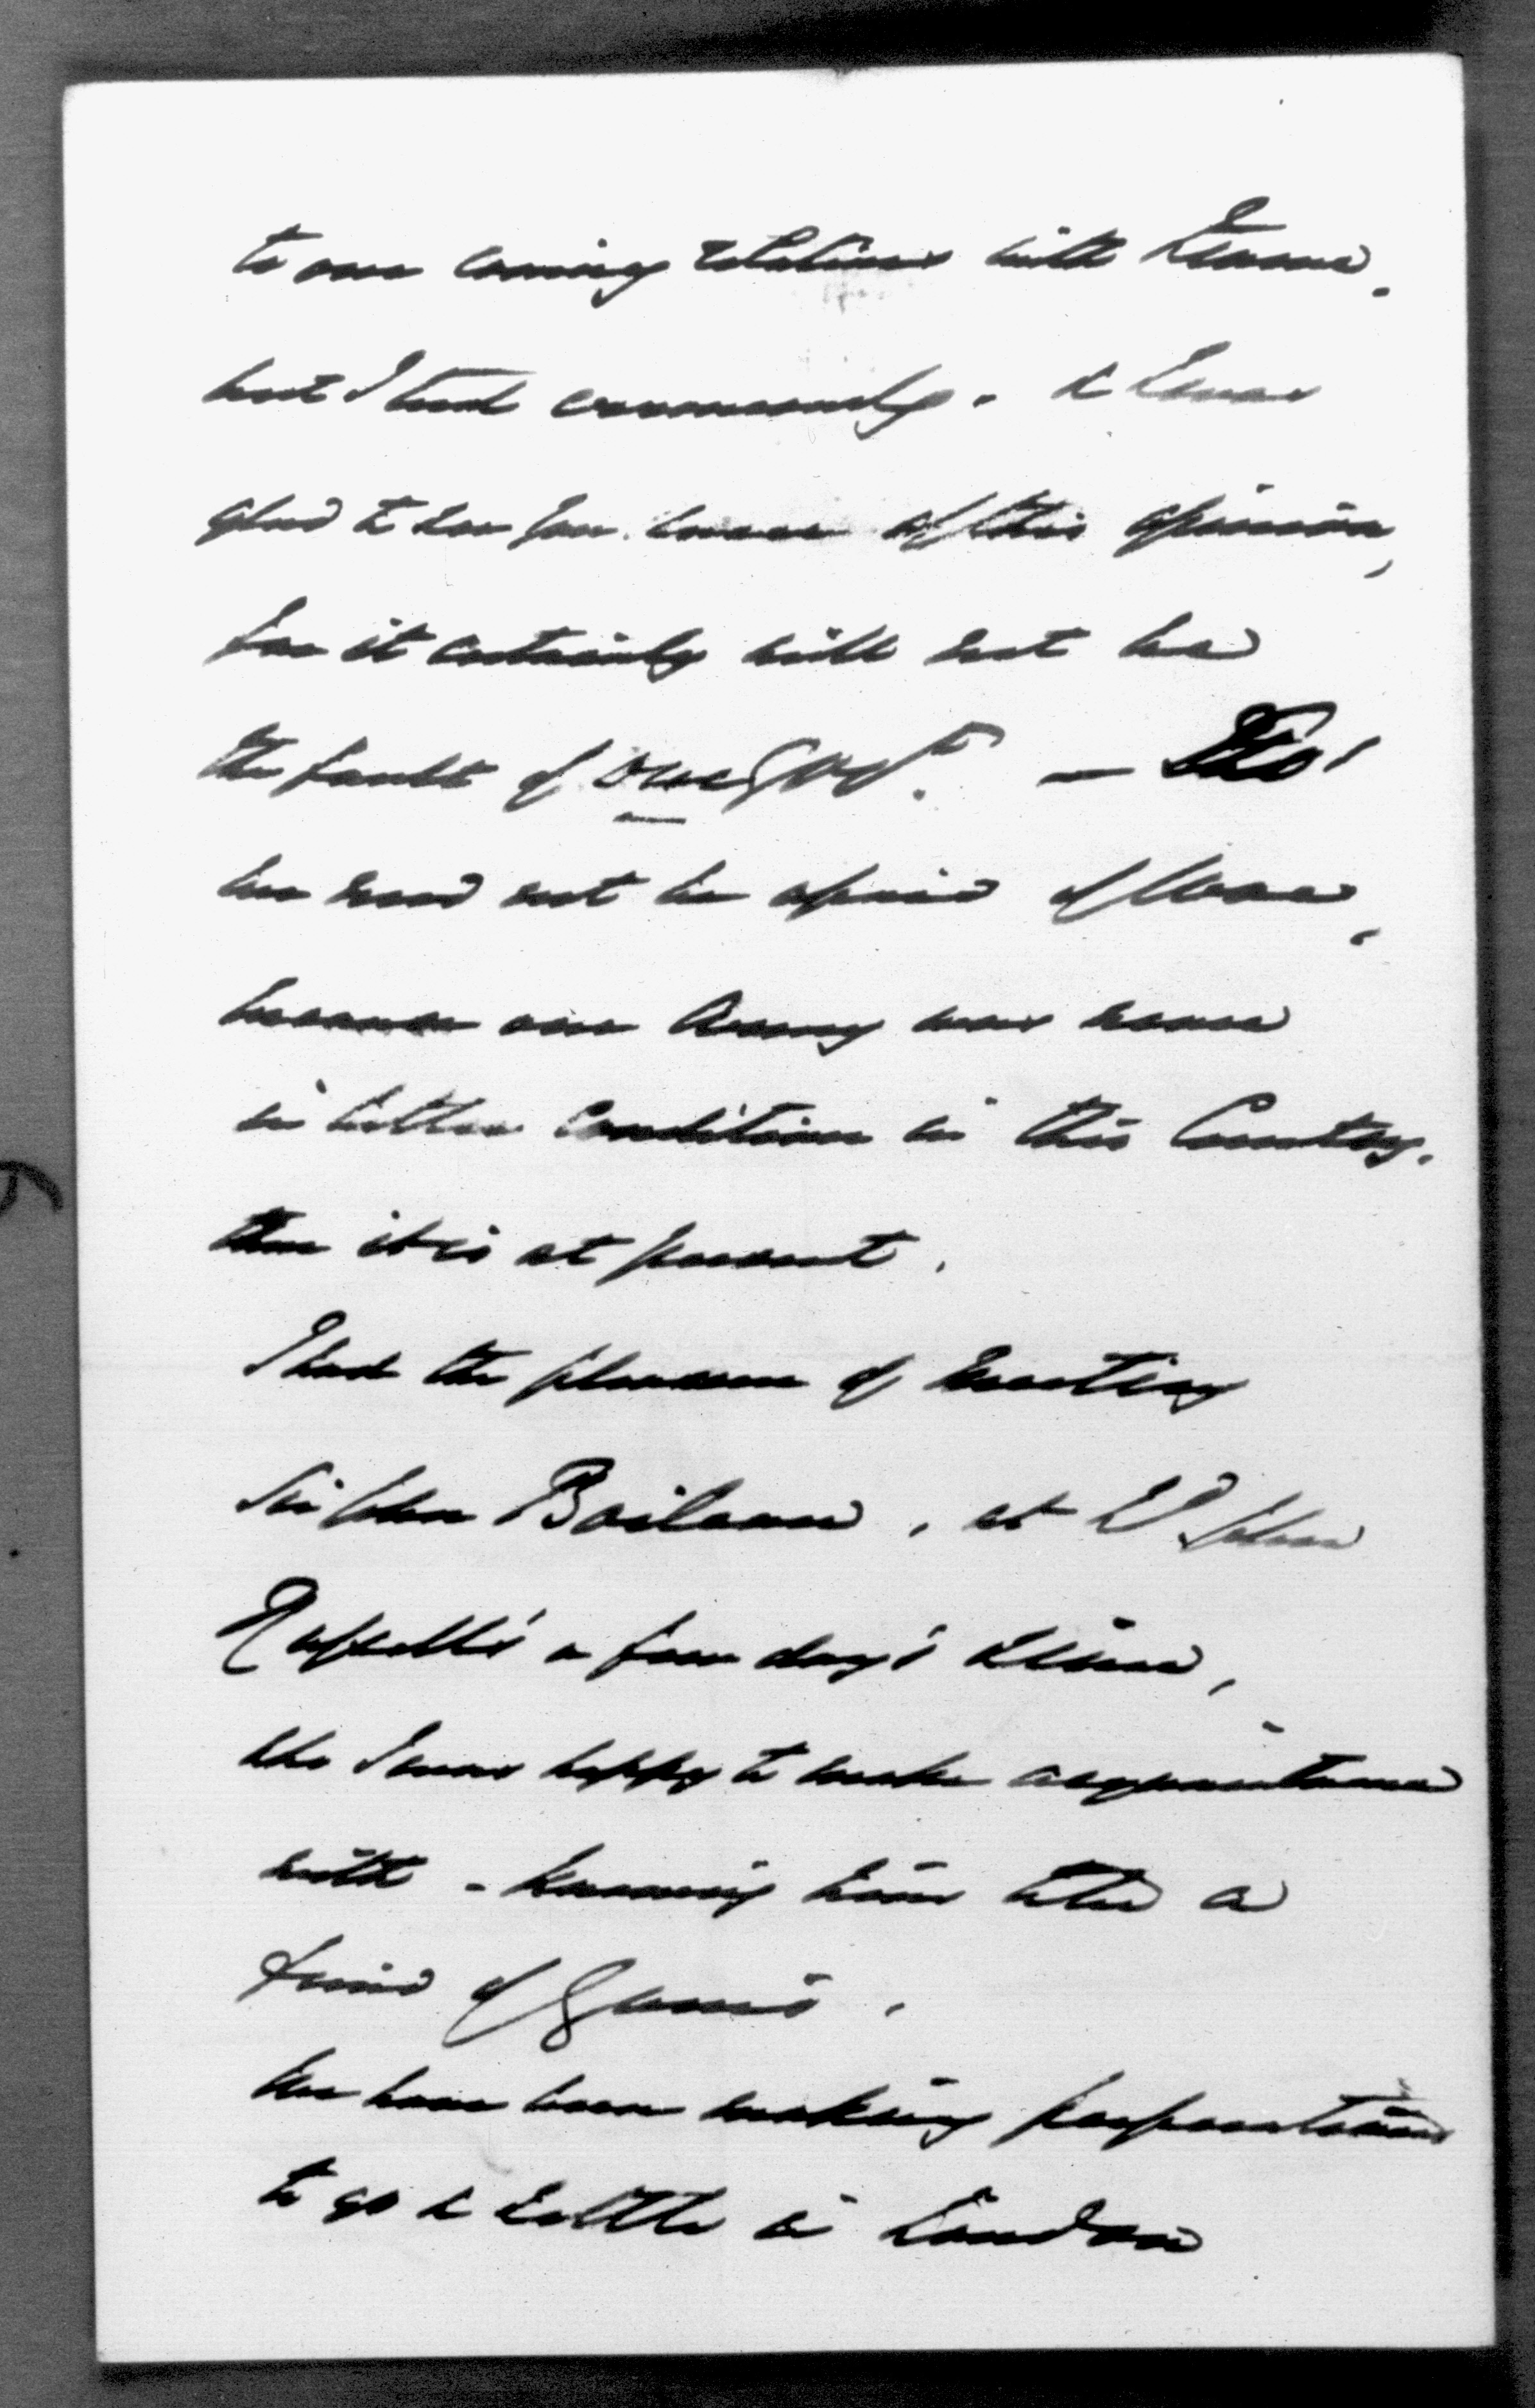 to our coming relations with France,
but I trust erroneously. & I was
glad to see you were of this opinion,
for it certainly will not be
the fault of our Govt. — Tho'
we need not be afraid of War,
because our Army was never
in better condition in this Country,
than it is at present.
I had the pleasure of meeting
Sir John Boileau, at Ld John
Russell's a few day's since,
who I was happy to make acquaintance
with - knowing him to be a
friend of Yours.
We have been making preparations
to go & settle in London